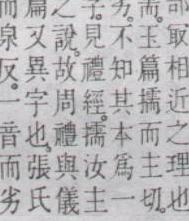 部取相近之理也
而玉篇擩而主切
劣。不知其本爲一
子。見禮經。擩汝主
之說。故周禮與儀
篇又異字也。張氏
而泉反。一音而劣